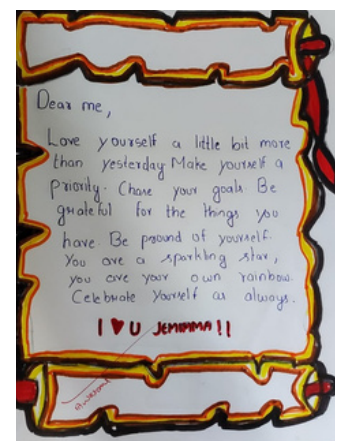 Dear me,
Love yourself a little bit more
than yesterday Make yourself a
priority. Chase your goals Be
grateful for the things you
have. Be proud of yourself.
You are a sparkling star,
you are your own rainbow.
Celebrate yourself as always.
I ♥ U JEMIMMA!!
Awesome